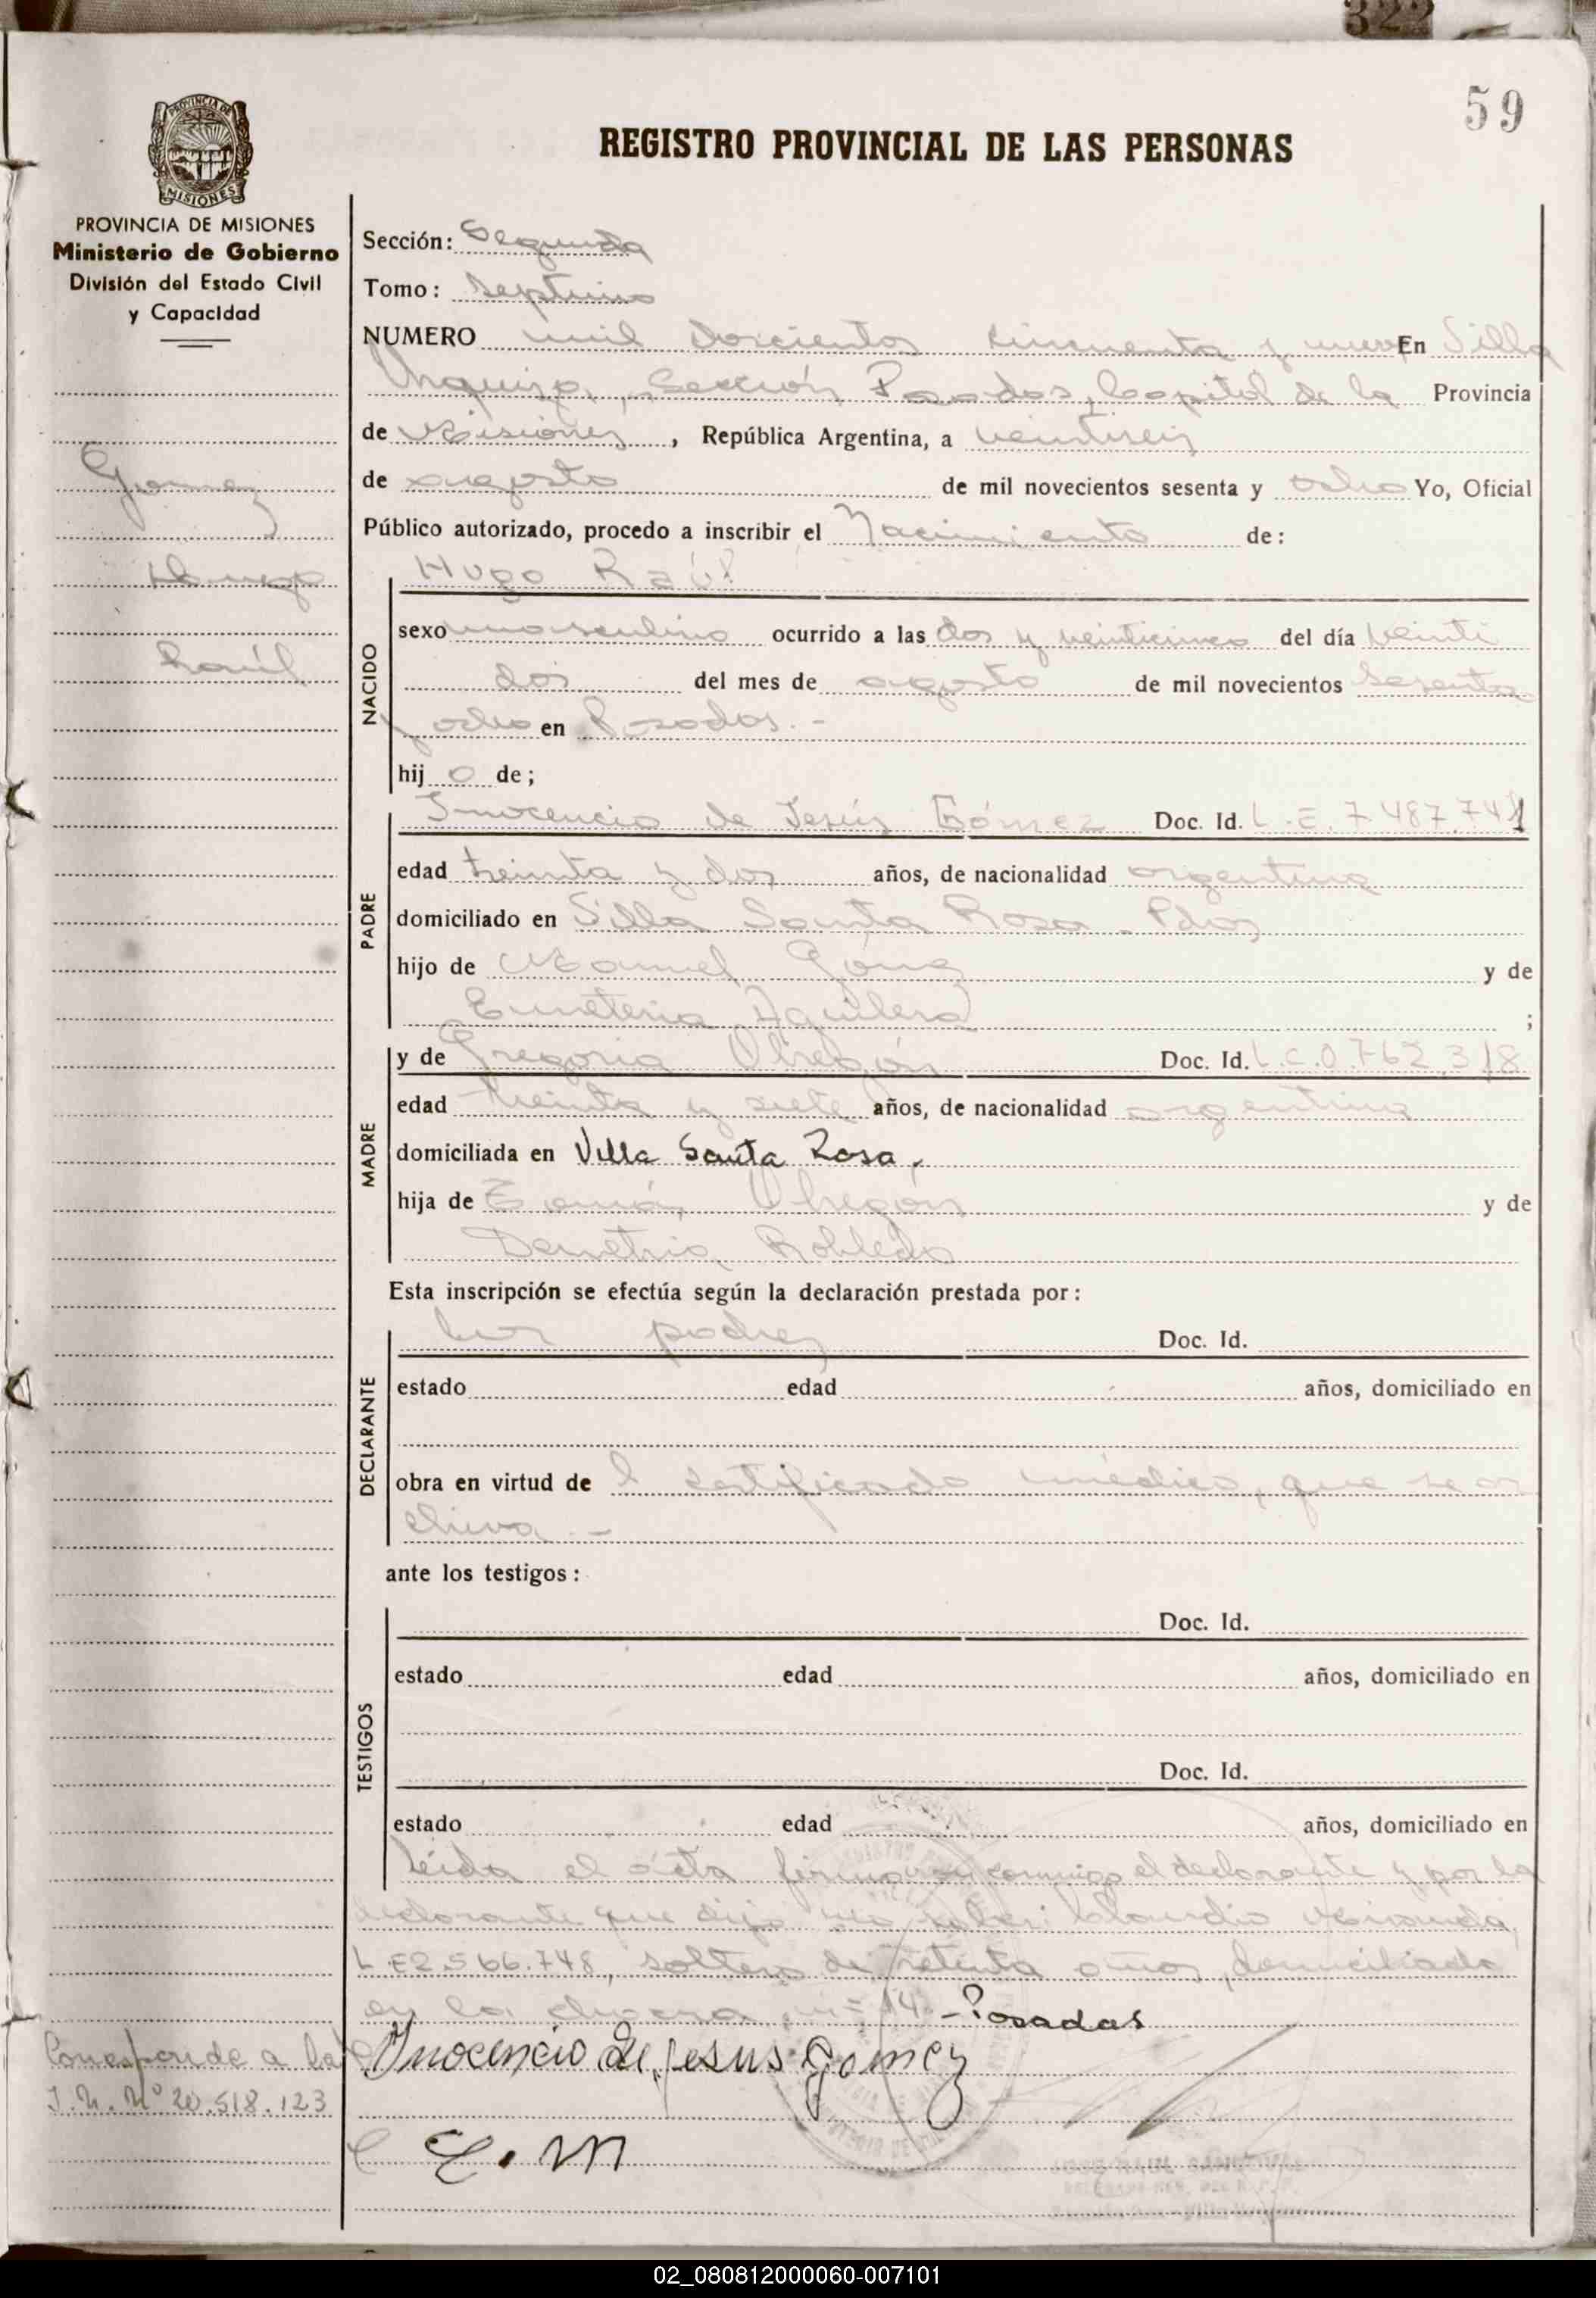 322
59
REGISTRO PROVINCIAL DE LAS PERSONAS
PROVINCIA DE MISIONES
MISIONES
PROVINCIA DE MISIONES
Ministerio de Gobierno
División del Estado Civil
y Capacidad
Gomez
Hugo
Raúl
Sección: Segunda
Tomo: Septimo
NUMERO mil doscientos cincuenta y nueve En Villa
Urquiza, Sección Posadas, Capital de la Provincia
de Misiones, República Argentina, a veintiseis
de agosto de mil novecientos sesenta y ocho Yo, Oficial
Público autorizado, procedo a inscribir el Nacimiento de:
NACIDO
Hugo Raúl
sexo masculino ocurrido a las dos y veinticinco del día veinti
dos del mes de agosto de mil novecientos sesenta
y ocho en Posadas.-
hijo de;
PADRE
Inocencio de Jesús Gómez Doc. Id. L.E. 7.487.741
edad treinta y dos años, de nacionalidad argentina
domiciliado en Villa Santa Rosa - Pdas
hijo de Manuel Gómez y de
Emeteria Aguilera ;
MADRE
y de Gregoria Obregón Doc. Id. L.C.0.762.318
edad treinta y siete años, de nacionalidad argentina
domiciliada en Villa Santa Rosa.
hija de Tomás Obregón y de
Demetria Robledo
Esta inscripción se efectúa según la declaración prestada por:
DECLARANTE
los padres Doc. Id.
estado edad años, domiciliado en
obra en virtud de l certificado médico, que se ar
chiva.-
ante los testigos:
TESTIGOS
Doc. Id.
estado edad años, domiciliado en
Doc. Id.
estado edad años, domiciliado en
Leida el acta firma conmigo el declarante y por la
declarante que dijo no saber: Claudio Miranda,
L.E2.566.748, soltero de setenta años, domiciliado
en la chacra nº 14.- Posadas
Corresponde a la
I.N. Nº 20.518.123
Inocencio De jesus gomez
C. M
02_080812000060-007101